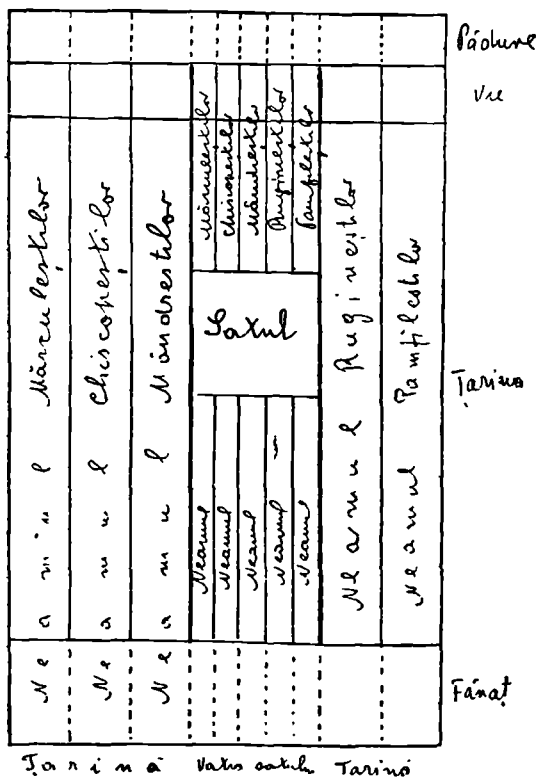 Pădure
Vie
Neamul Mărculeștilor
Neamul Chiscopeștilor
Neamul Mândreștilor
Neamul Mărculeștilor
Neamul Chiscopeștilor
Neamul Mândreștilor
Neamul Ruginestilor
Neamul Pamfilestilor
Satul
Neamul Rugineștilor
Neamul Pamfilestilor
Țarina
Fânaț
Țarină Vatra satului Țarină